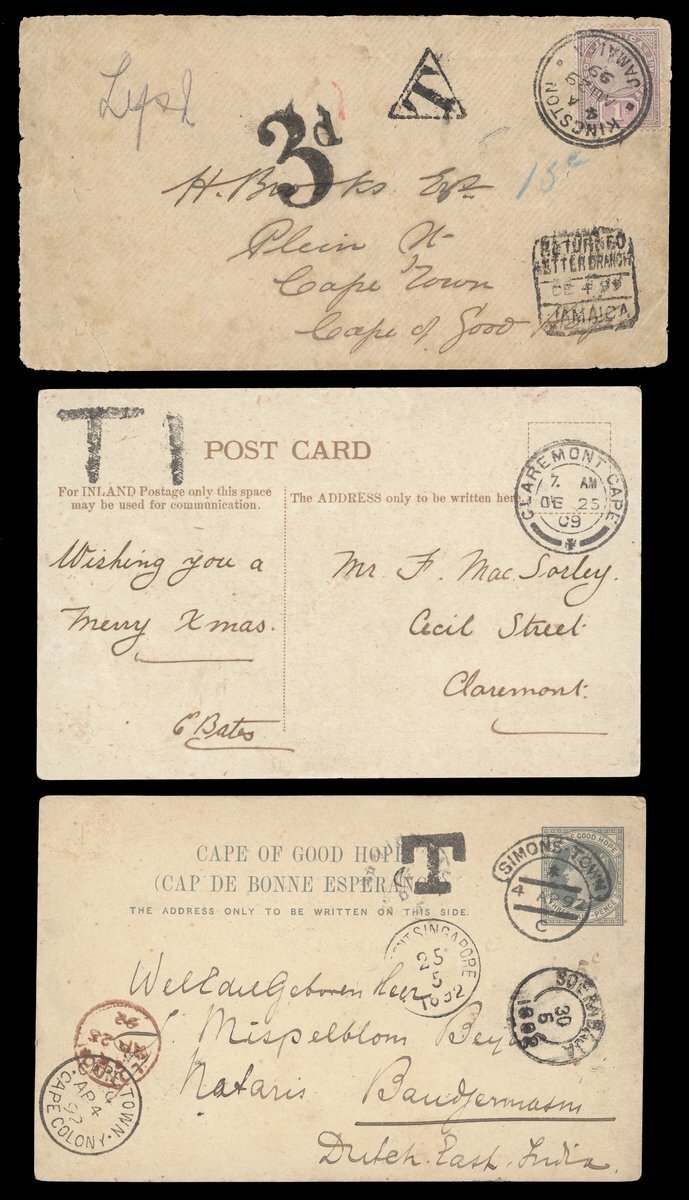 T
3d
KINGSTON
JAMAICA
99
H. Brooks Esq.
15c
Plein St
Cape Town
Cape of Good Hope
RETURNED
LETTER BRANCH
DE 4 99
JAMAICA
T 1
POST CARD
For INLAND Postage only this space
may be used for communication.
The ADDRESS only to be written here
CLAREMONT CAPE
7 AM
DE 25
09
Wishing you a
Merry Xmas.
E Bates
Mr F. Mac Sorley.
Cecil Street
Claremont.
CAPE OF GOOD HOPE
(CAP DE BONNE ESPERANCE)
THE ADDRESS ONLY TO BE WRITTEN ON THIS SIDE.
T
SIMONS TOWN
C
SINGAPORE
25
5
1892
SOERABAJA
30
5
1892
Mispelblom Beyer
Notaris Bandjermasin
Dutch East India
AP 23
92
CAPE TOWN
AP 4
92
CAPE COLONY